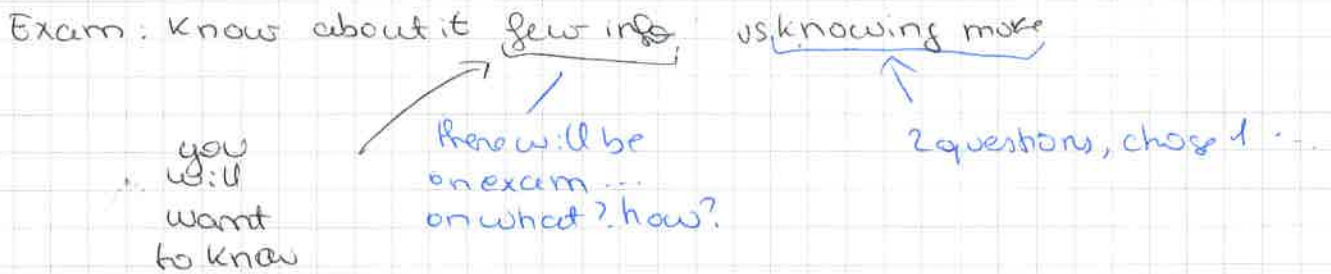 Exam: Know about it few info vs knowing more
you
will
want
to know
there will be
on exam ...
on what? how?
2 questions, chose 1 ...